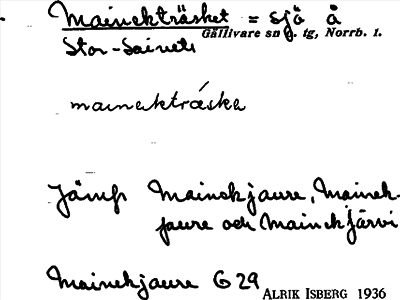 Mainekträsket = sjö å
Gällivare sn o. tg, Norrb. l.
Stor-Sainets
mainekträske
Jämf Mainekjaure, Mainek-
jaure och Mainekjärvi
Mainekjaure G 29
ALRIK ISBERG 1936